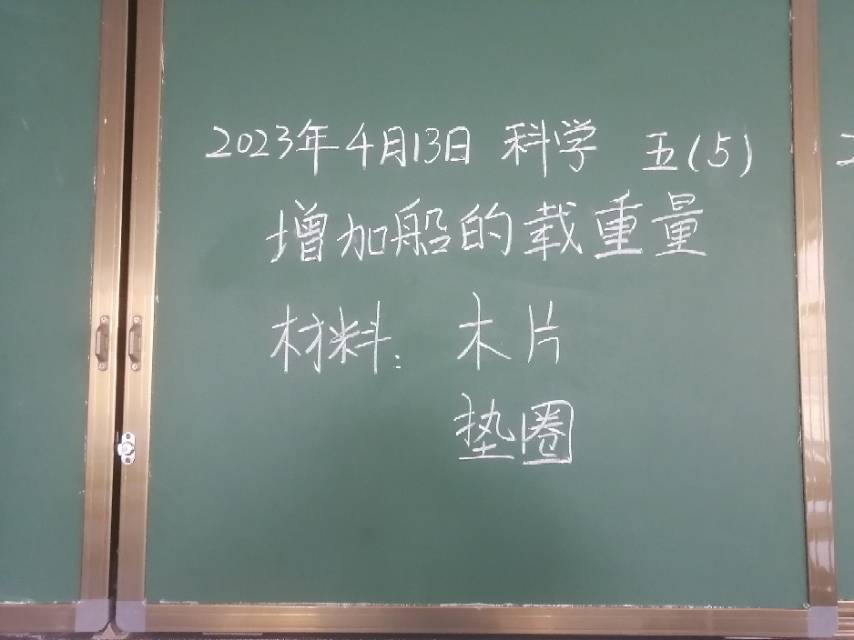 2023年4月13日 科学 五(5)
增加船的载重量
材料: 木片
垫圈